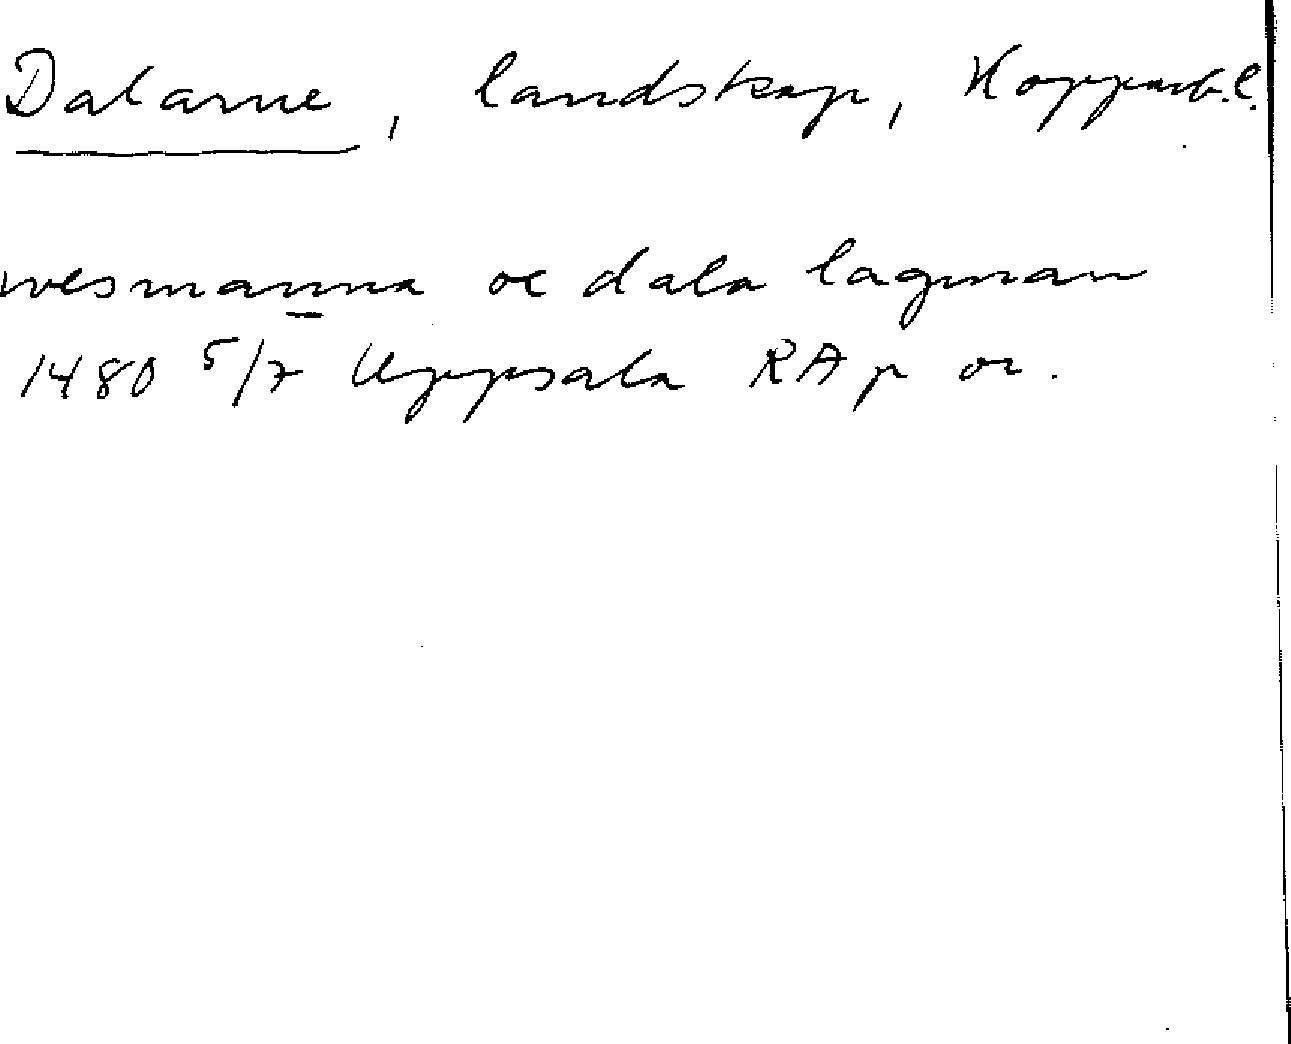 Dalarne, landskap, Kopparb.l.
wesmanna oc dala lagman
1480 5/7 Uppsala RA p or.